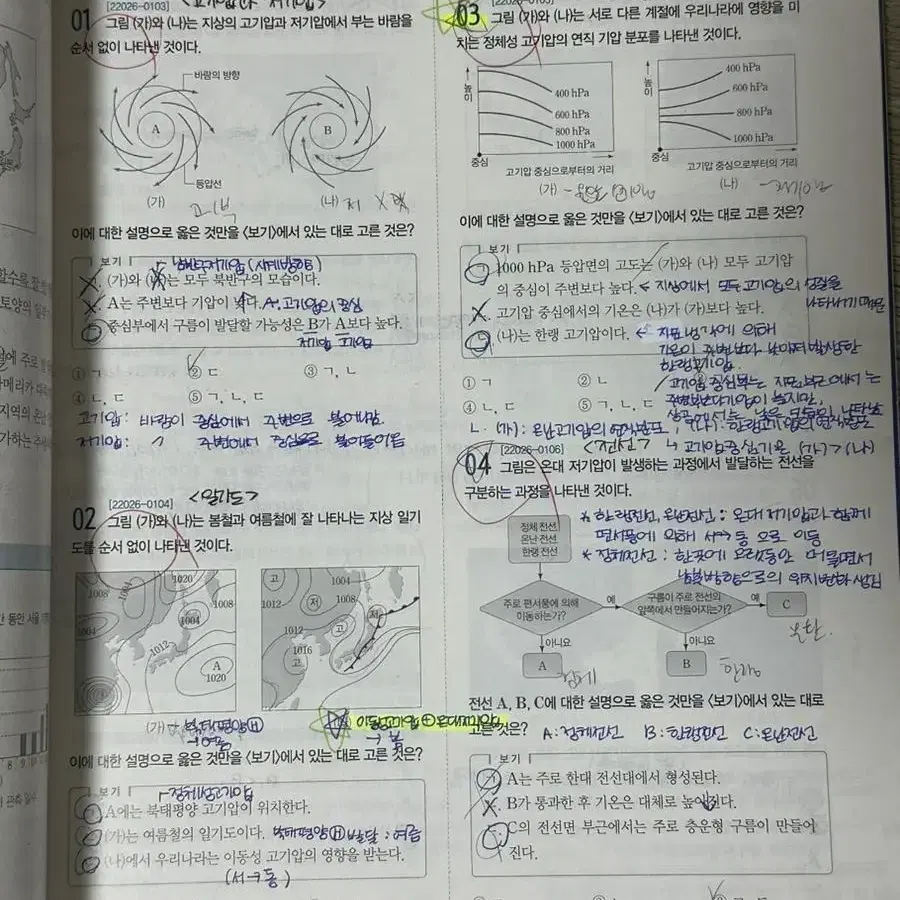 [22026-0103]
01 그림 (가)와 (나)는 지상의 고기압과 저기압에서 부는 바람을
순서 없이 나타낸 것이다.
바람의 방향
A
B
등압선
(가)
(나) 저
이에 대한 설명으로 옳은 것만을 <보기>에서 있는 대로 고른 것은?
보기
북반구 저기압 (시계 반대)
(가)와 (나)는 모두 북반구의 모습이다.
A는 주변보다 기압이 낮다. A: 고기압의 중심
중심부에서 구름이 발달할 가능성은 B가 A보다 높다.
저기압 고기압
① ㄱ ② ㄷ ③ ㄱ, ㄴ
④ ㄴ, ㄷ ⑤ ㄱ, ㄴ, ㄷ
고기압: 바람이 중심에서 주변으로 불어나감
저기압: 〃 주변에서 중심으로 불어들어옴
<일기도>
[22026-0104]
02 그림 (가)와 (나)는 봄철과 여름철에 잘 나타나는 지상 일기
도를 순서 없이 나타낸 것이다.
1020
1008
1004
1008
1004
1004
1012
A
1020
고
1004
1012
저
1008
저
1012
고
1016
고
(가) → 북태평양 H
→ 여름
이동성고기압 + 온대저기압
→ 봄
이에 대한 설명으로 옳은 것만을 <보기>에서 있는 대로 고른 것은?
보기
정체성고기압
A에는 북태평양 고기압이 위치한다.
(가)는 여름철의 일기도이다. 북태평양 H 발달 : 여름
(나)에서 우리나라는 이동성 고기압의 영향을 받는다.
(서→동)
03 그림 (가)와 (나)는 서로 다른 계절에 우리나라에 영향을 미
치는 정체성 고기압의 연직 기압 분포를 나타낸 것이다.
높이
400 hPa
600 hPa
800 hPa
1000 hPa
중심
고기압 중심으로부터의 거리
(가)
높이
400 hPa
600 hPa
800 hPa
1000 hPa
중심
고기압 중심으로부터의 거리
(나)
이에 대한 설명으로 옳은 것만을 <보기>에서 있는 대로 고른 것은?
보기
1000 hPa 등압면의 고도는 (가)와 (나) 모두 고기압
의 중심이 주변보다 높다. ← 지상에서 모두 고기압의 성질을
나타내기 때문
고기압 중심에서의 기온은 (나)가 (가)보다 높다.
(나)는 한랭 고기압이다. ← 지표 냉각에 의해
기온이 주변보다 낮아져 발생한
한랭고기압
① ㄱ ② ㄴ
④ ㄴ, ㄷ ⑤ ㄱ, ㄴ, ㄷ
고기압 중심부는 지표 부근에서는
주변보다 기압이 높지만,
ㄴ. (가): 온난고기압의 연직분포, (나): 한랭고기압의 연직분포
↳ 고기압 중심기온 (가) > (나)
[22026-0106] <전선>
04 그림은 온대 저기압이 발생하는 과정에서 발달하는 전선을
구분하는 과정을 나타낸 것이다.
* 한랭전선, 온난전선 : 온대저기압과 함께
편서풍에 의해 서→동 으로 이동
* 정체전선 : 한곳에 오랫동안 머물면서
남북방향으로의 위치변화 생김
정체 전선
온난 전선
한랭 전선
주로 편서풍에 의해
이동하는가?
예
구름이 주로 전선의
앞쪽에서 만들어지는가?
예
C
온난
아니요
아니요
A
정체
B
한랭
전선 A, B, C에 대한 설명으로 옳은 것만을 <보기>에서 있는 대로
고른 것은? A: 정체전선 B: 한랭전선 C: 온난전선
보기
A는 주로 한대 전선대에서 형성된다.
B가 통과한 후 기온은 대체로 높아진다.
C의 전선면 부근에서는 주로 층운형 구름이 만들어
진다.